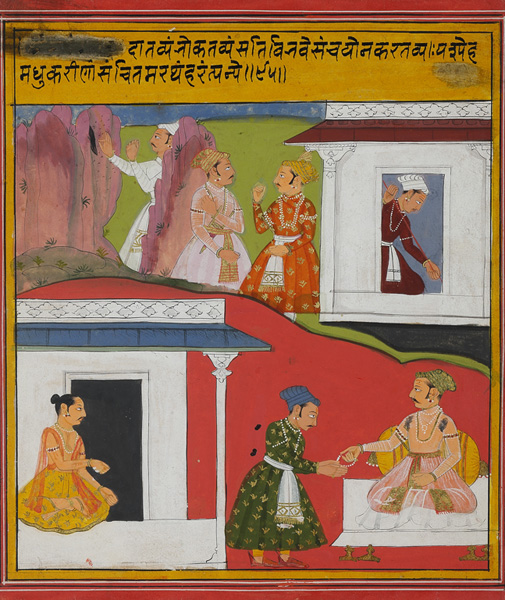 दातव्यंभोक्तव्यंसतिविभवेसंचयोनकरतव्यः।पश्येह
मधुकरीणांसंचितमरथंहरंत्यन्ये॥९५॥